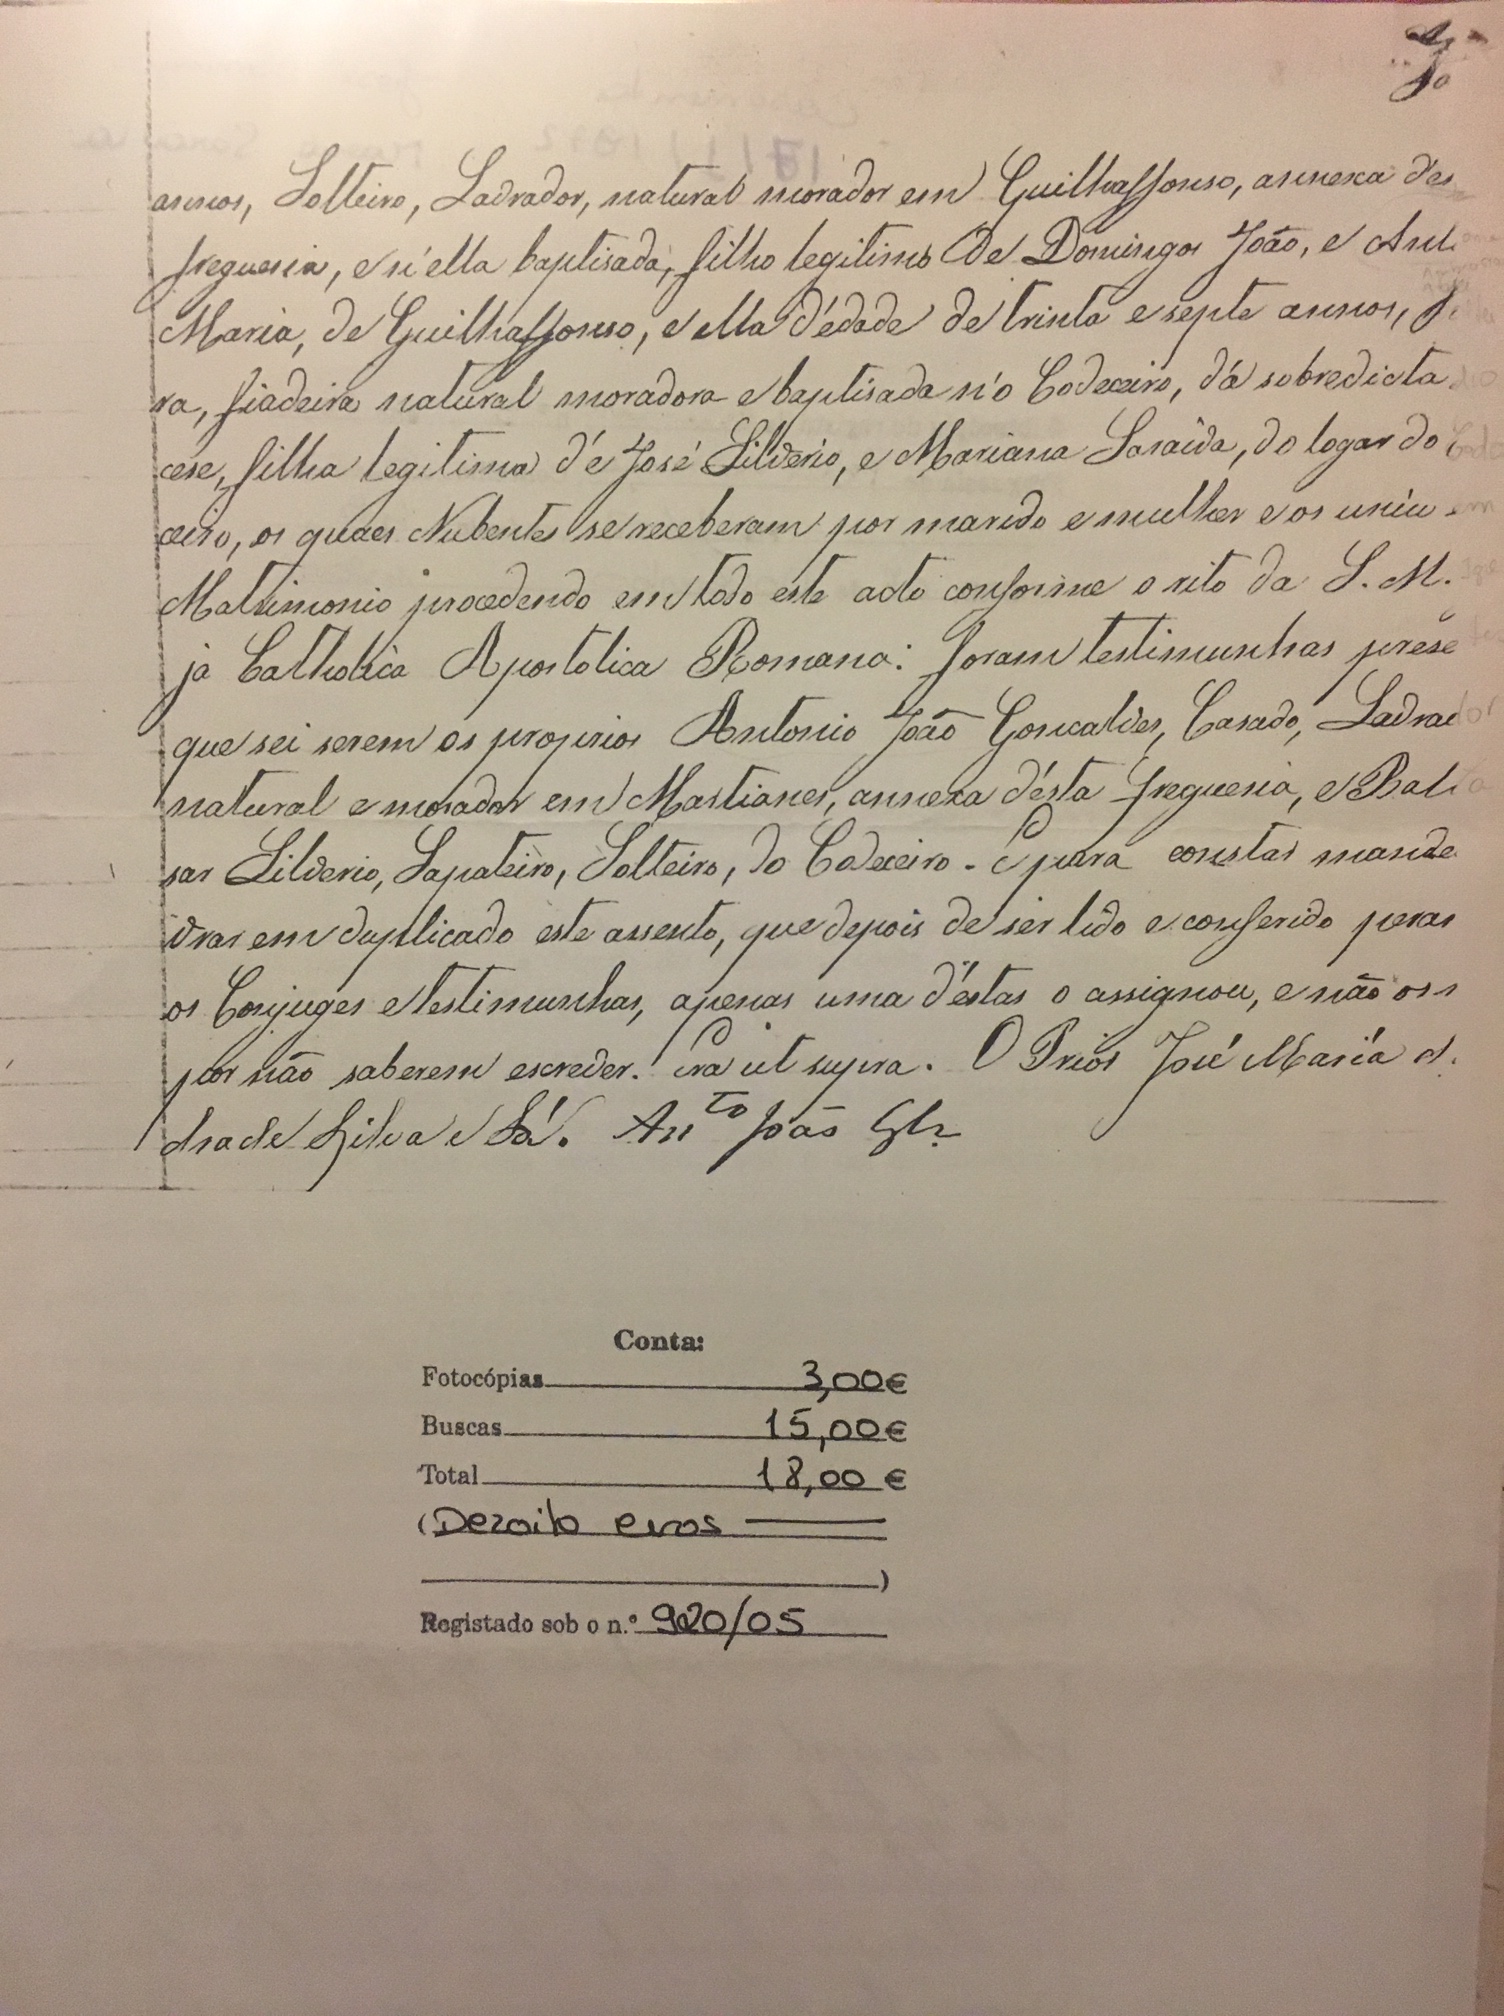 annos, Solteiro, Lavrador, natural morador em Guilhaffonso, annexa des
freguesia, e n'ella baptisado, filho legitimo de Domingos João, e Ant
Maria, de Guilhaffonso, e ella d'edade de trinta e septe annos,
ra, fiadeira natural moradora e baptisada n'o Codeceiro, dá sobredicta
cese, filha legitima d'é José Silverio, e Mariana Saraiva, do logar do Code
ceiro, os quaes Nubentes se receberam por marido e mulher e os uniu em
Matrimonio procedendo em todo este acto conforme o rito da S. M.
ja Catholica Apostolica Romana: foram testimunhas prese
que sei serem os proprios Antonio João Goncalves, Casado, Lavrador
natural e morador em Mastianes, annexa d'ésta freguesia, e Balta
sar Silverio, Sapateiro, Solteiro, do Codeceiro - E para constar mandei
vrar em duplicado este assento, que depois de ser lido e conferido peran
os Conjuges e testimunhas, apenas uma d'éstas o assignou, e não os
por não saberem escrever. Era ut supra. O Prior José Maria
drade Silva e Sá. Ant.to João Glz
Conta:
Fotocópias 3,00€
Buscas 15,00€
Total 18,00 €
(Dezoito euros
)
Registado sob o n.º 920/05